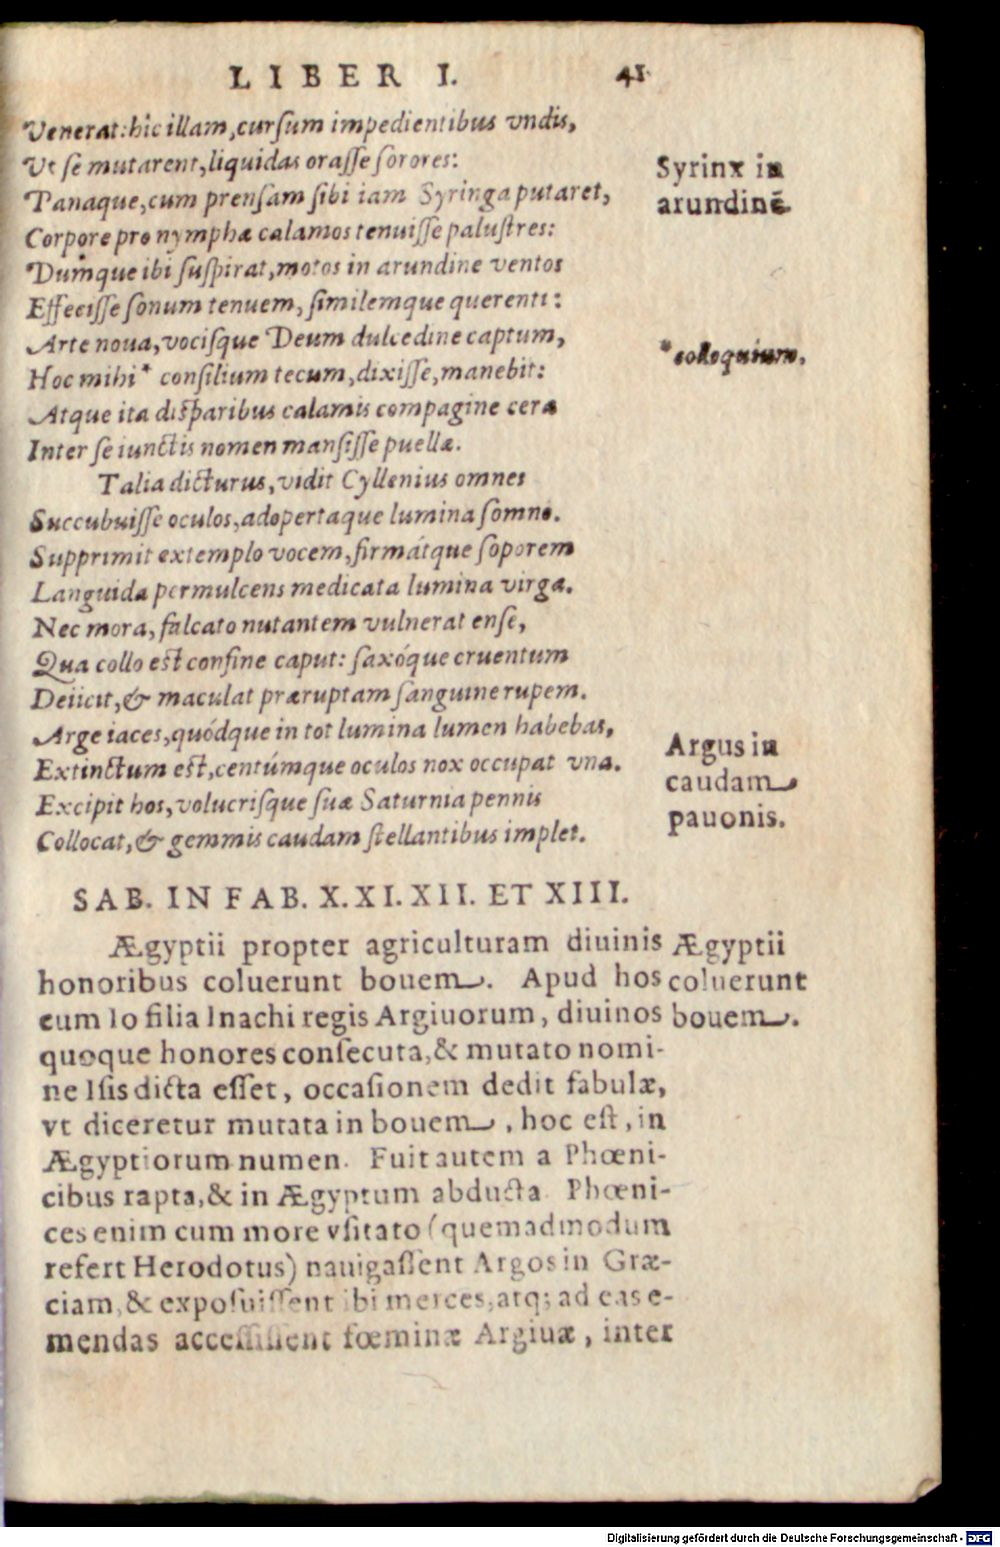 LIBER I. 41
Venerat: hîc illam, cursum impedientibus vndis,
Vt se mutarent, liquidas orasse sorores:
Panaque, cum prensam sibi iam Syringa putaret,
Corpore pro nymphæ calamos tenuisse palustres:
Dumque ibi suspirat, motos in arundine ventos
Effecisse sonum tenuem, similemque querenti:
Arte noua, vocisque Deum dulcedine captum,
Hoc mihi* consilium tecum, dixisse, manebit:
Atque ita disparibus calamis compagine ceræ
Inter se iunctis nomen mansisse puellæ.
Talia dicturus, vidit Cyllenius omnes
Succubuisse oculos, adopertaque lumina somno.
Supprimit extemplo vocem, firmátque soporem
Languida permulcens medicata lumina virga.
Nec mora, falcato nutantem vulnerat ense,
Qua collo est confine caput: saxóque cruentum
Deiicit, & maculat præruptam sanguine rupem.
Arge iaces, quódque in tot lumina lumen habebas,
Extinctum est, centúmque oculos nox occupat vna.
Excipit hos, volucrisque suæ Saturnia pennis
Collocat, & gemmis caudam stellantibus implet.
Syrinx in
arundinē
*colloquium.
Argus in
caudam
pauonis.
SAB. IN FAB. X. XI. XII. ET XIII.
Ægyptii propter agriculturam diuinis
honoribus coluerunt bouem. Apud hos
cum Io filia Inachi regis Argiuorum, diuinos
quoque honores consecuta, & mutato nomi-
ne Isis dicta esset, occasionem dedit fabulæ,
vt diceretur mutata in bouem, hoc est, in
Ægyptiorum numen. Fuit autem a Phœni-
cibus rapta, & in Ægyptum abducta. Phœni-
ces enim cum more vsitato (quemadmodum
refert Herodotus) nauigassent Argos in Græ-
ciam, & exposuissent ibi merces, atq; ad eas e-
mendas accessissent fœminæ Argiuæ, inter
Ægyptii
coluerunt
bouem.
Digitalisierung gefördert durch die Deutsche Forschungsgemeinschaft - DFG